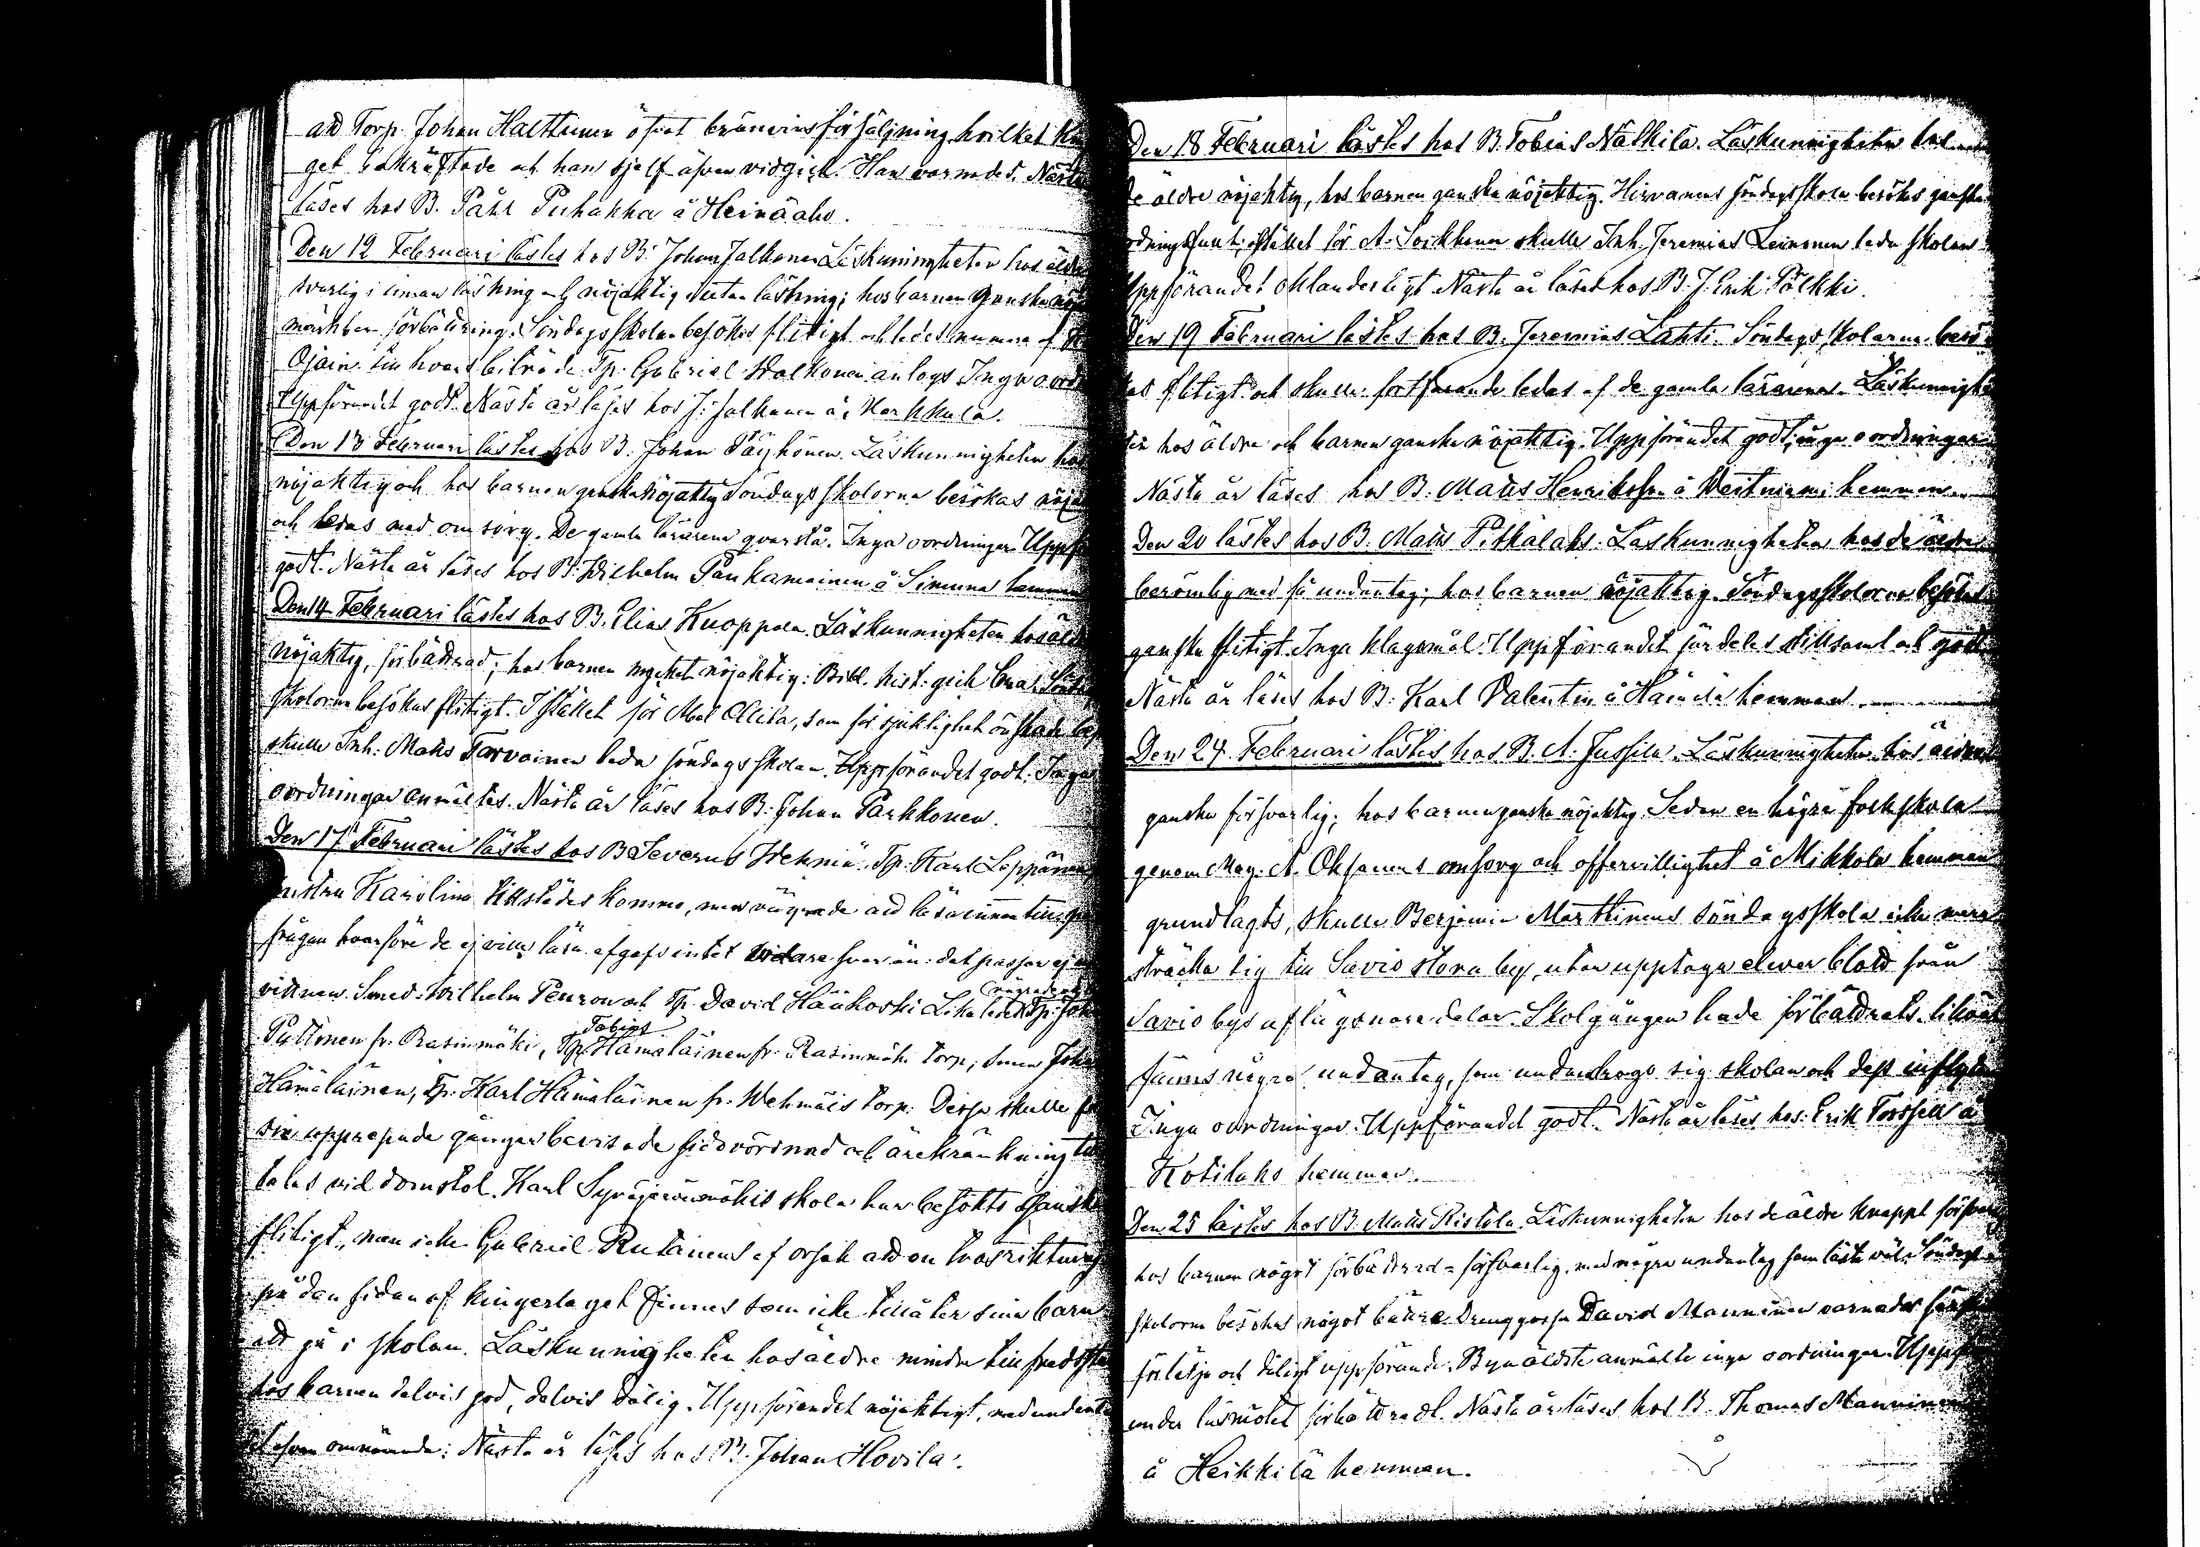 att Torp. Johan Halttunen öfvat bränvinsförsäljning hvilket
get bekräftade och han sjelf äfven vidgick. Han varnades. Nästa
läses hos B. Påhl Puhakka å Heinäaho.
Den 12 Februari lästes hos B. Johan Jalkanen Läskunnigheten hos äldre
svarlig i innan läsning och nöjaktig i utan läsning; hos barnen ganska
märkbar förbättring. Söndagsskolan besökes flitigt och ledes numera af
Ojain till hvars biträde Tp. Gabriel Walkonen antogs Inga
Uppförandet godt. Nästa år läses hos J. Jalkanen å Harkkula.
Den 13 Februari lästes hos B. Johan Päykönen. Läskunnigheten hos
nöjaktig och hos barnen ganska nöjaktig Söndagsskolorna besökas
och ledas med omsorg. De gamla lärarena qvarstå. Inga oordningar.
godt. Nästa år läses hos B. Wilhelm Pankamainen å Simuna hemman
Den 14 Februari lästes hos B. Elias Kuoppala. Läskunnigheten hos äldre
nöjaktig, förbättrad; hos barnen mycket nöjaktig: Bibl. hist. gick bra.
skolorna besökas flitigt. I stället för Abel Ollila, som för sjuklighet önskade
skulle Inh. Mats Tarvainen leda söndagsskolan. Uppförandet godt. Inga
oordningar anmältes. Nästa år läses hos B. Johan Parkkonen.
Den 17 Februari lästes hos B Severus Wehniä. Tp. Karl Leppänen
hustru Karolina tillstädes komma, men vägrade att läsa innantill; på
frågan hvarföre de ej ville läsa afgafs intet vidare svar än: det passar ej
vittnen Smed. Wilhelm Penrow och Tp. David Häähoski Lika ledes Tp. Joh
vägrade
Pyttönen fr. Rasinmäki, Tp. Tobias Hämäläinen fr. Rasinmäki torp; Sonen Joha
Hämäläinen, Tp. Karl Hämäläinen fr. Wehmäis torp. Dessa skulle
sin upprepade gånger bevisade sidvördnad och ärekränkning
talas vid domstol. Karl Syväjärvimäkis skola har besökts ganska
flitigt, men icke Gabriel Rutanens af orsak att en trosriktning
på den sidan af kingerlaget finnes som icke tillåter sina barn
att gå i skolan. Läskunnigheten hos äldre mindre tillfredsst
hos barnen delvis god, delvis dålig. Uppförandet nöjaktigt, med undanta
ofvan omnämnda: Nästa år läses hos B. Johan Hovila.
Den 18 Februari lästes hos B. Tobias Näskilä. Läskunnigheten hos
de äldre nöjaktig, hos barnen ganska nöjaktig. Hirvanens söndagsskola besökes ganska
ordningsfullt; i stället för A. Soikkanen skulle Inh. Jeremias Leinonen leda skolan
Uppförandet oklanderligt Nästa år läses hos B. J. Erik Pölkki.
Den 19 Februari lästes hos B. Jeremias Lahti. Söndagsskolorna besö
kas flitigt och skulle fortfarande ledas af de gamla lärarena. Läskunnighe
ten hos äldre och barnen ganska nöjaktig. Uppförandet godt; inga oordningar
Nästa år läses hos B: Mats Henriksson å Weitniemi hemman
Den 20 lästes hos B. Mats Pitkälaks. Läskunnigheten hos de äldre
berömlig med få undantag; hos barnen nöjaktig. Söndagsskolorna besökas
ganska flitigt. Inga klagomål. Uppförandet särdeles stillsamt och godt
Nästa år läses hos B: Karl Valentin å Hämälä hemman
Den 24 Februari lästes hos B. A. Jussila. Läskunnigheten hos äldre
ganska försvarlig; hos barnen ganska nöjaktig. Sedan en högre folkskola
genom Mag. A. Oksanens omsorg och offervillighet å Mikkola hemman
grundlagts, skulle Benjamin Marttinens söndagsskola icke mera
sträcka sig till Savio stora by, utan upptaga elever blott från
Savio bys aflägsnare delar. Skolgången hade förbättrats. likväl
fanns några undantag, som undandrogo sig skolan och dess inflytande
Inga oordningar. Uppförandet godt. Nästa år läses hos: Erik Forssell å
Kotilaks hemman.
Den 25 lästes hos B. Matts Ristola. Läskunnigheten hos de äldre knappt försvarlig
hos barnen något förbättrad = försvarlig, med några undantag som läste väl. Söndags
skolorna besökas något bättre. Drenggossen David Manninen varnades för
förlätja och dåligt uppförande. Byn äldste anmälte inga oordningar.
under läsmötet förbättradt. Nästa år läses hos B. Thomas Manninen
å Heikkilä hemman.